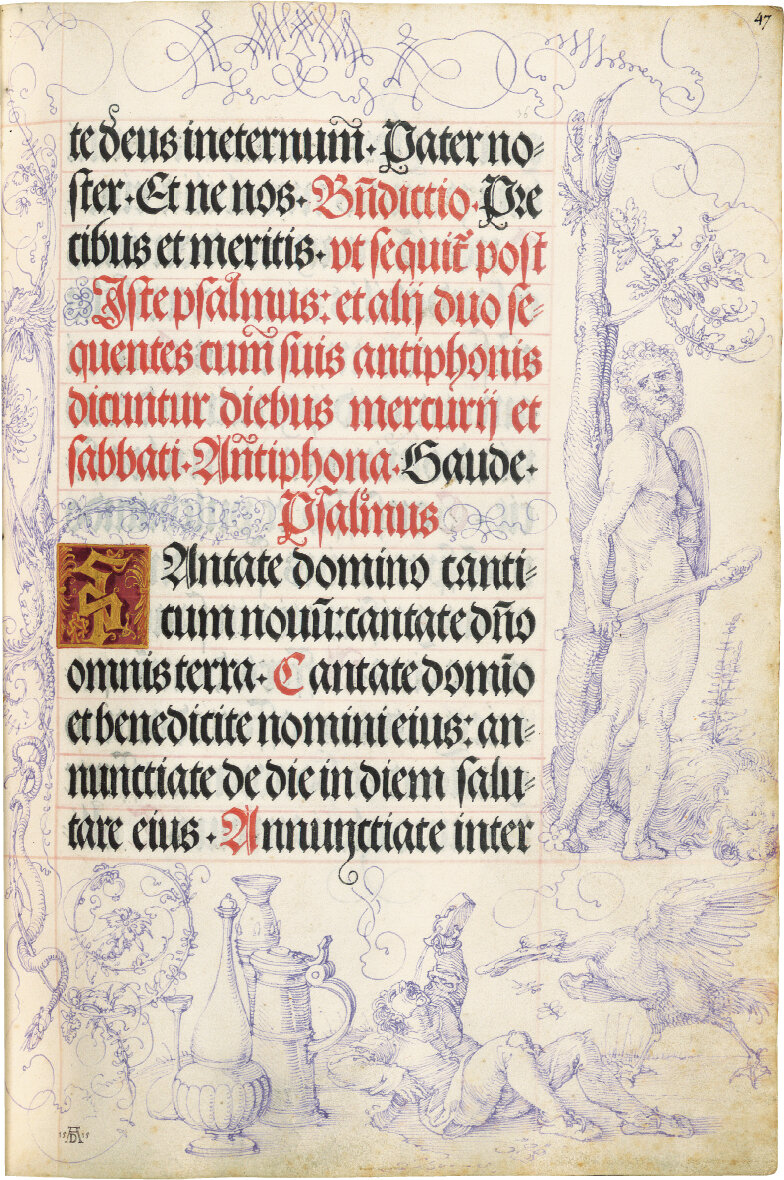 47
36
te deus ineternum̄. Pater no=
ster. Et ne nos. Bn̄dictio. Pre
cibus et meritis. vt sequit᷑ post
Iste psalmus: et alij duo se=
quentes cum̄ suis antiphonis
dicuntur diebus mercurij et
sabbati. An̄tiphona. Gaude.
Psalmus
CAntate domino canti=
cum nouū: cantate dn̄o
omnis terra. Cantate domīo
et benedicite nomini eius: an=
nunctiate de die in diem salu=
tare eius. Annunctiate inter
15 AD 15